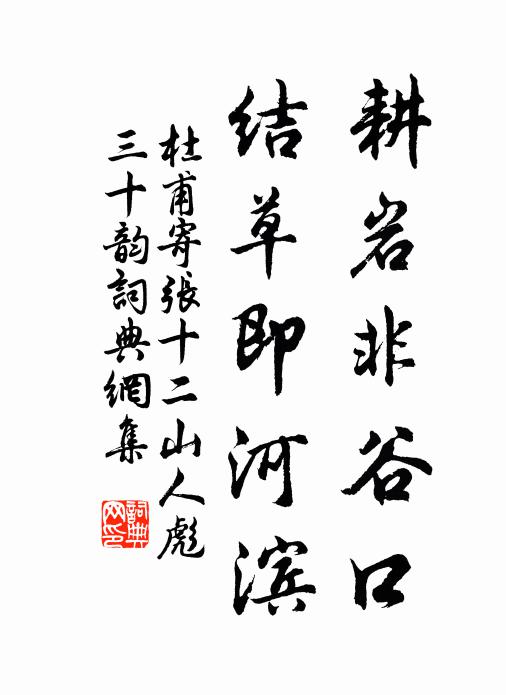 耕岩非谷口
结草即河滨
杜甫寄张十二山人彪
三十韵詞典網集
詞典
网印